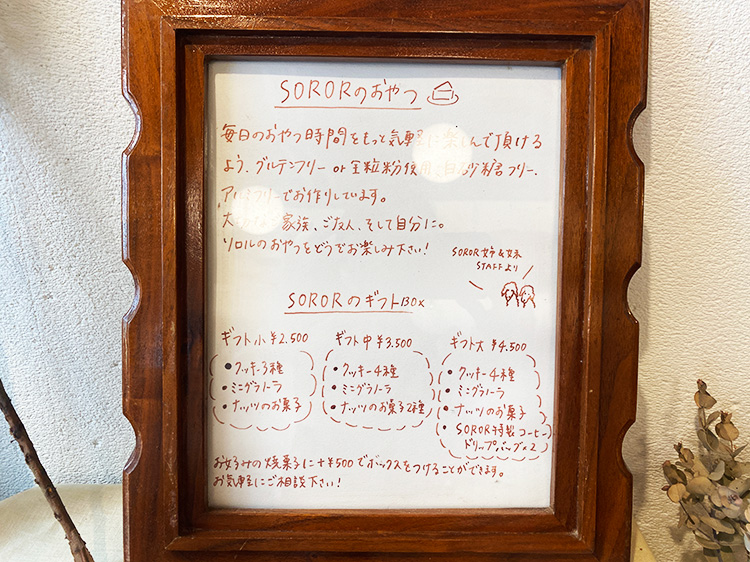 SORORのおやつ
毎日のおやつ時間をもっと気軽に楽しんで頂ける
よう、グルテンフリー or 全粒粉使用、白砂糖フリー、
アルミフリーでお作りしています。
家族、ご友人、そして自分に。
ソロルのおやつをどうぞお楽しみ下さい!
SOROR姉&妹
STAFFより
SORORのギフトBOX
ギフト小 ¥2.500
・クッキー3種
・ミニグラノーラ
・ナッツのお菓子
ギフト中 ¥3.500
・クッキー4種
・ミニグラノーラ
・ナッツのお菓子2種
ギフト大 ¥4.500
・クッキー4種
・ミニグラノーラ
・ナッツのお菓子
・SOROR特製コーヒー
ドリップバッグ×2
お好みの焼菓子に+¥500でボックスをつけることができます。
お気軽にご相談下さい!